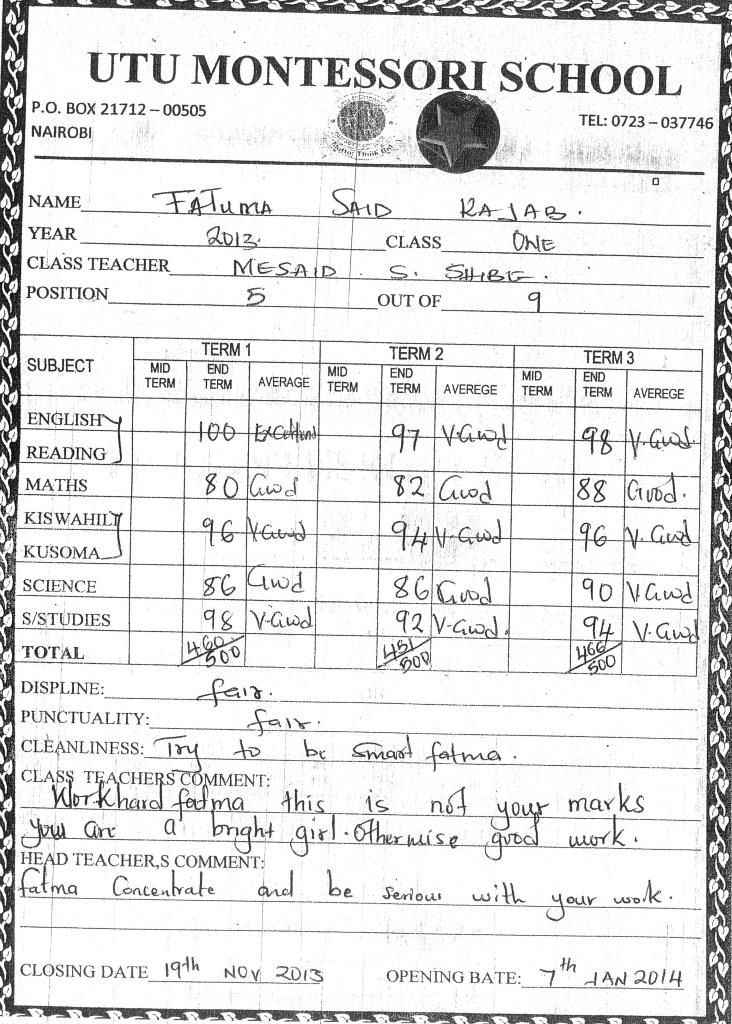 UTU MONTESSORI SCHOOL
P.O. BOX 21712 – 00505
TEL: 0723 – 037746
NAIROBI
NAME FATUMA SAID RAJAB.
YEAR 2013. CLASS ONE
CLASS TEACHER MESAID . S. SHIBE.
POSITION 5 OUT OF 9
SUBJECT TERM 1 TERM 2 TERM 3
MID TERM END TERM AVERAGE MID TERM END TERM AVEREGE MID TERM END TERM AVEREGE
ENGLISH
100 97 V.Good 98 V.Good.
READING
MATHS 80 Good 82 Good 88 Good.
KISWAHILI
96 V.Good 94 V.Good 96 V.Good
KUSOMA
SCIENCE 86 Good 86 Good 90 V.Good
S/STUDIES 98 V-Good 92 V-Good. 94 V-Good
TOTAL 460/500 451/500 466/500
DISPLINE: fair.
PUNCTUALITY: fair.
CLEANLINESS: Try to be smart fatma.
CLASS TEACHERS COMMENT:
Work hard fatma this is not your marks
you are a bright girl. Otherwise good work.
HEAD TEACHER,S COMMENT:
fatma Concentrate and be serious with your work.
CLOSING DATE 19th NOV 2013 OPENING BATE: 7th JAN 2014